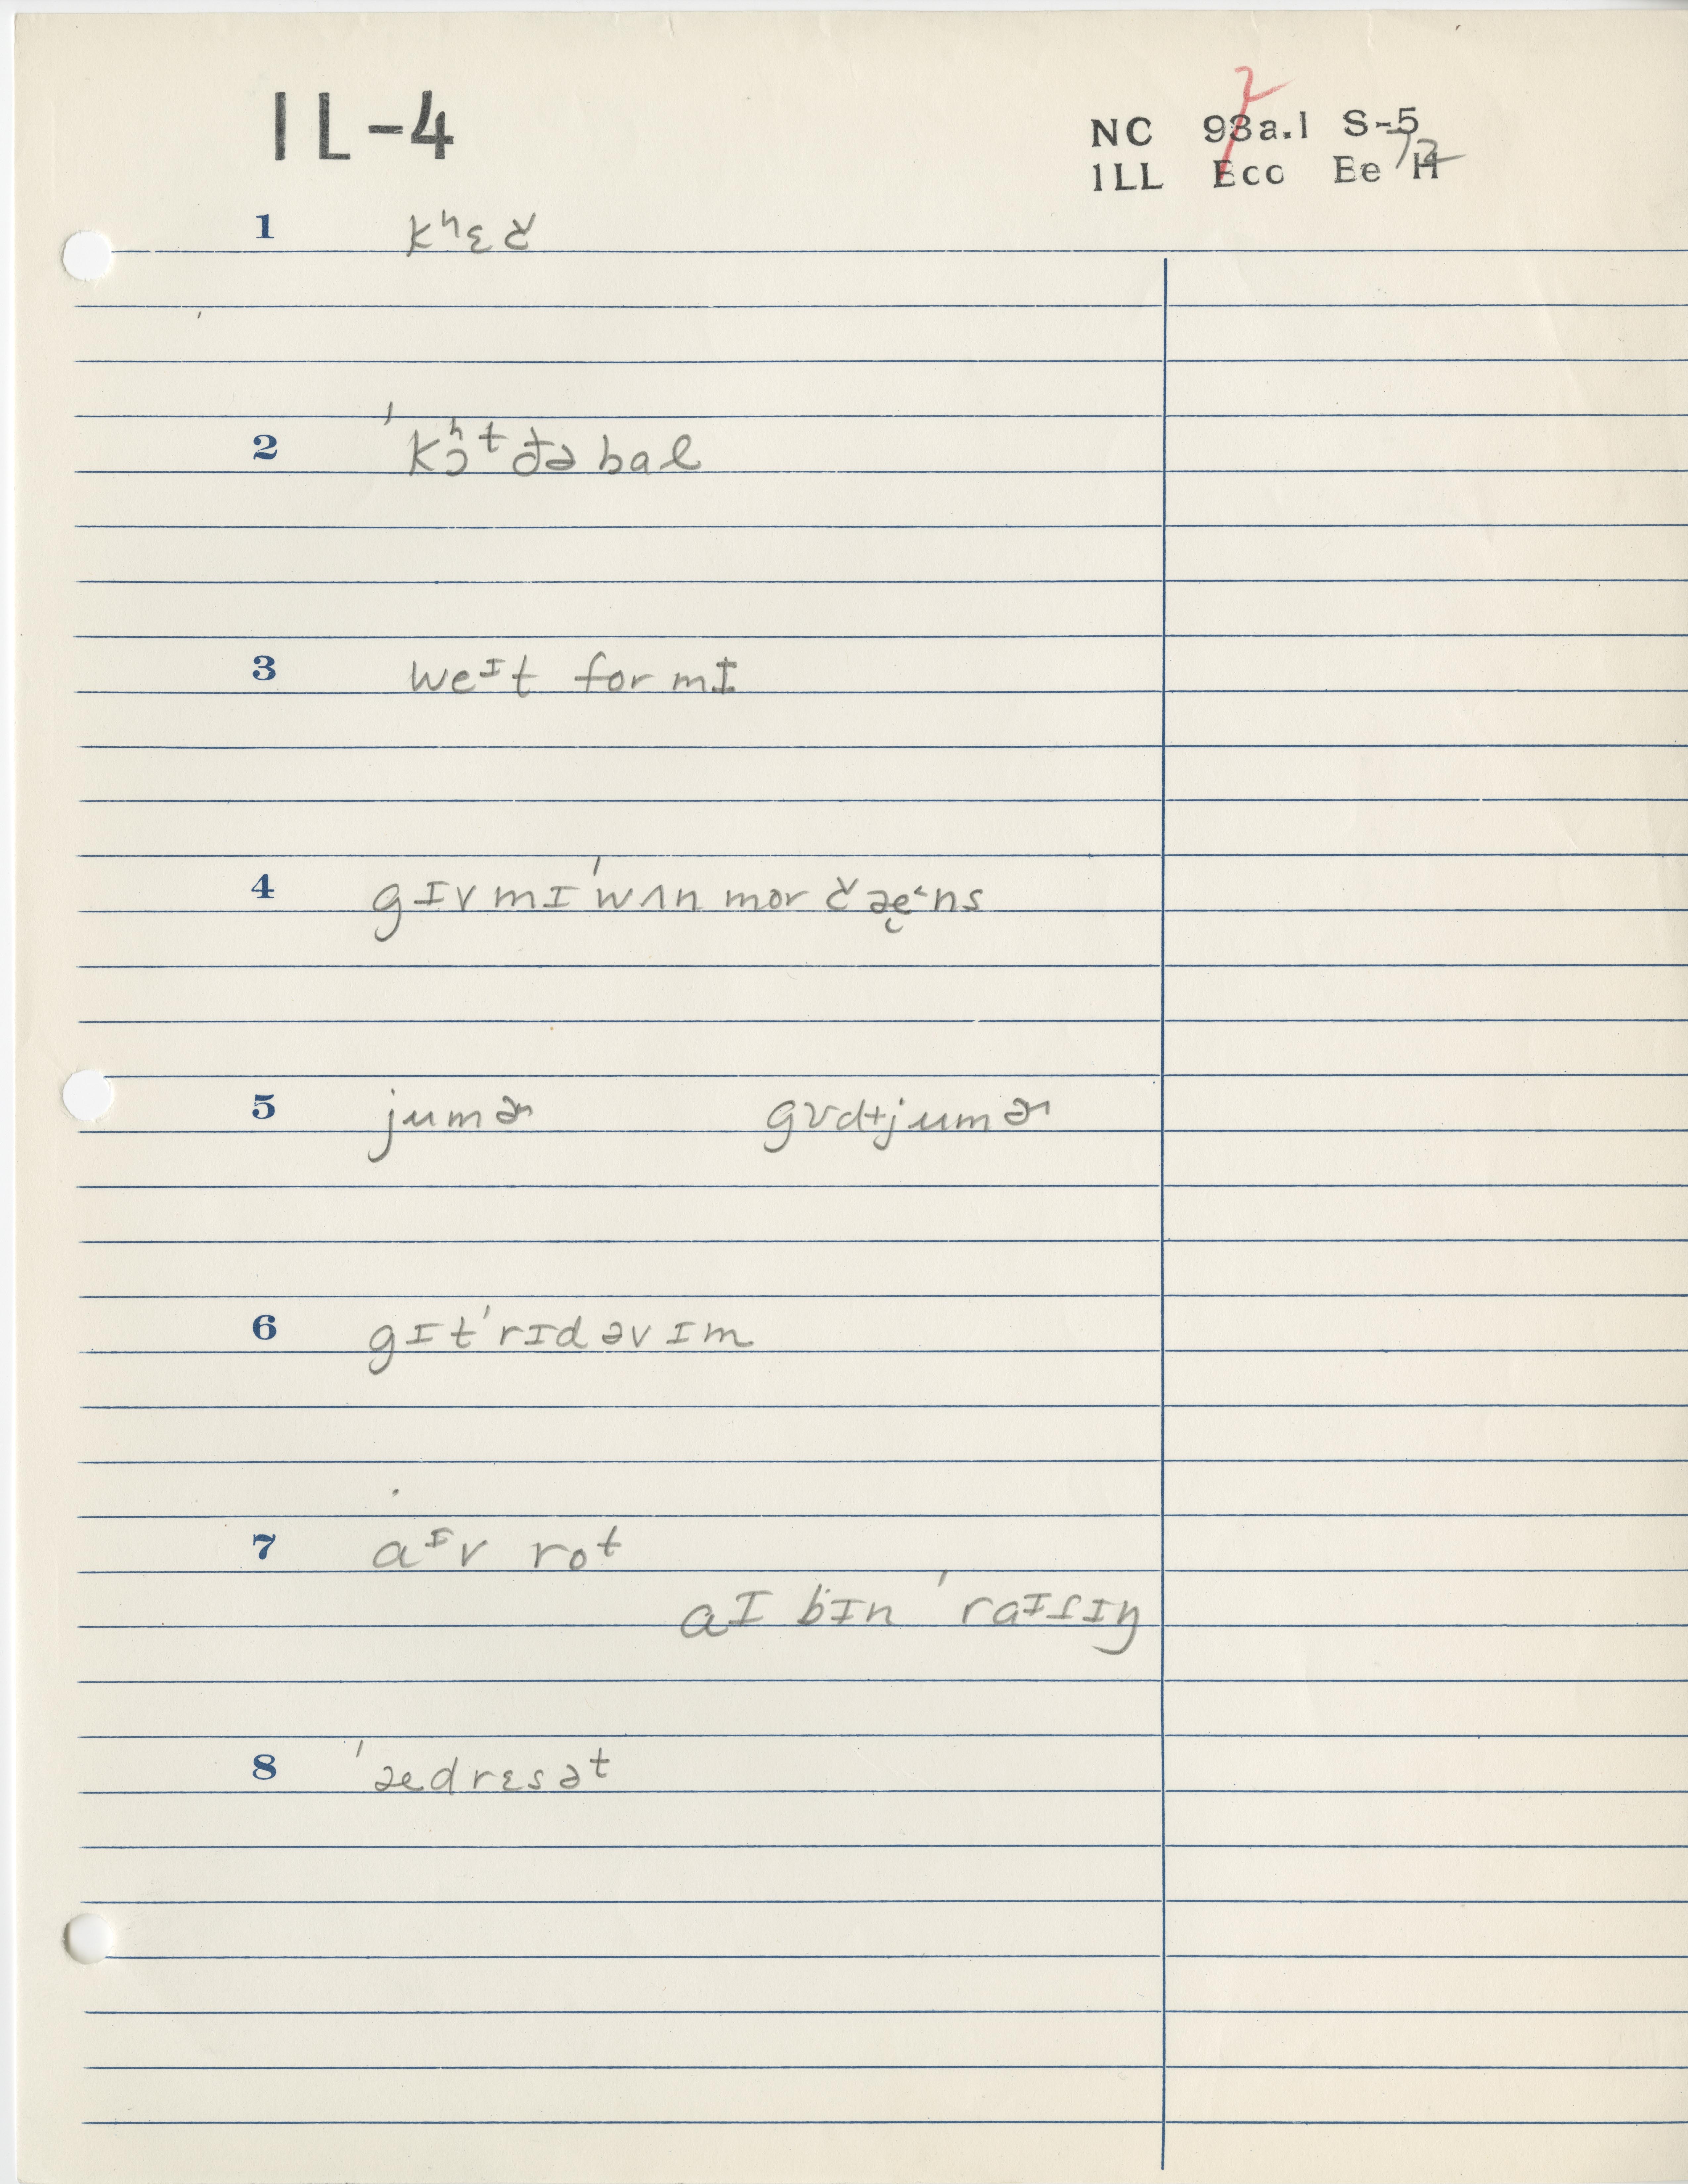 IL-4
NC 93a.1 S-5
2
ILL Ecc Ee H
12
1 kʰɛč
2 ˈkɔʰt ðə bal
3 weᴵt for mɪ
4 gɪv mɪ ˈwʌn mor čæ̜˂ns
5 jumɚ gʊd+jumɚ
6 gɪt ˈrɪd əv ɪm
7 aᴵv rot
aɪ bɪn ˈraɪtɪŋ
8 ˈædrɛs ət